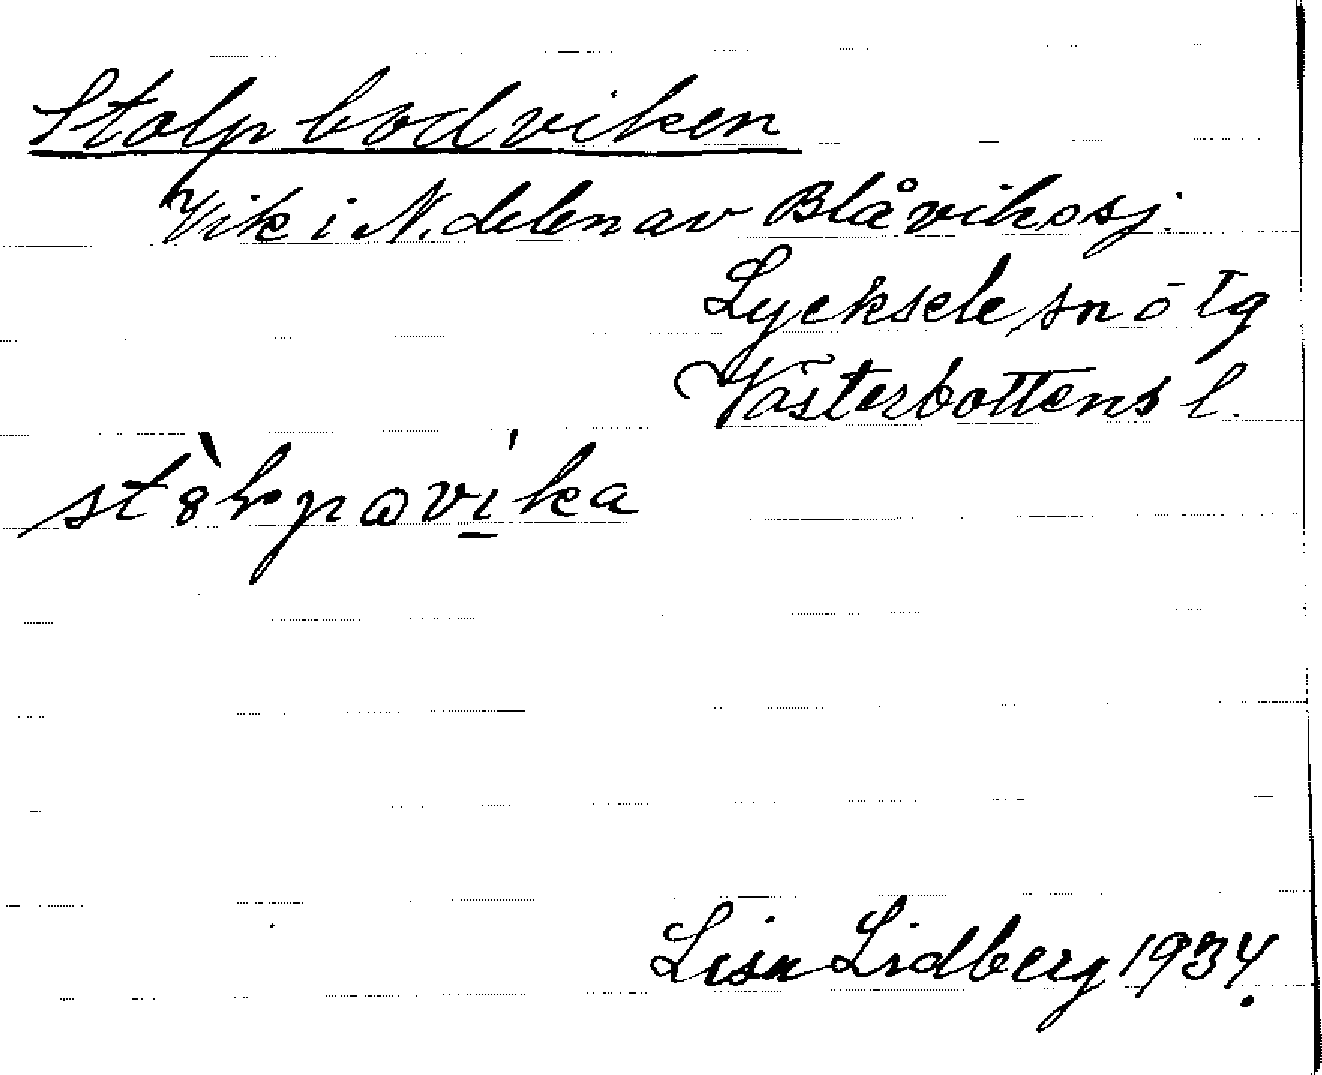 Stolpbodviken
Vik i N. delen av Blåviksj.
Lycksele sn o tg
Västerbottens l.
Lisa Lidberg 1934.